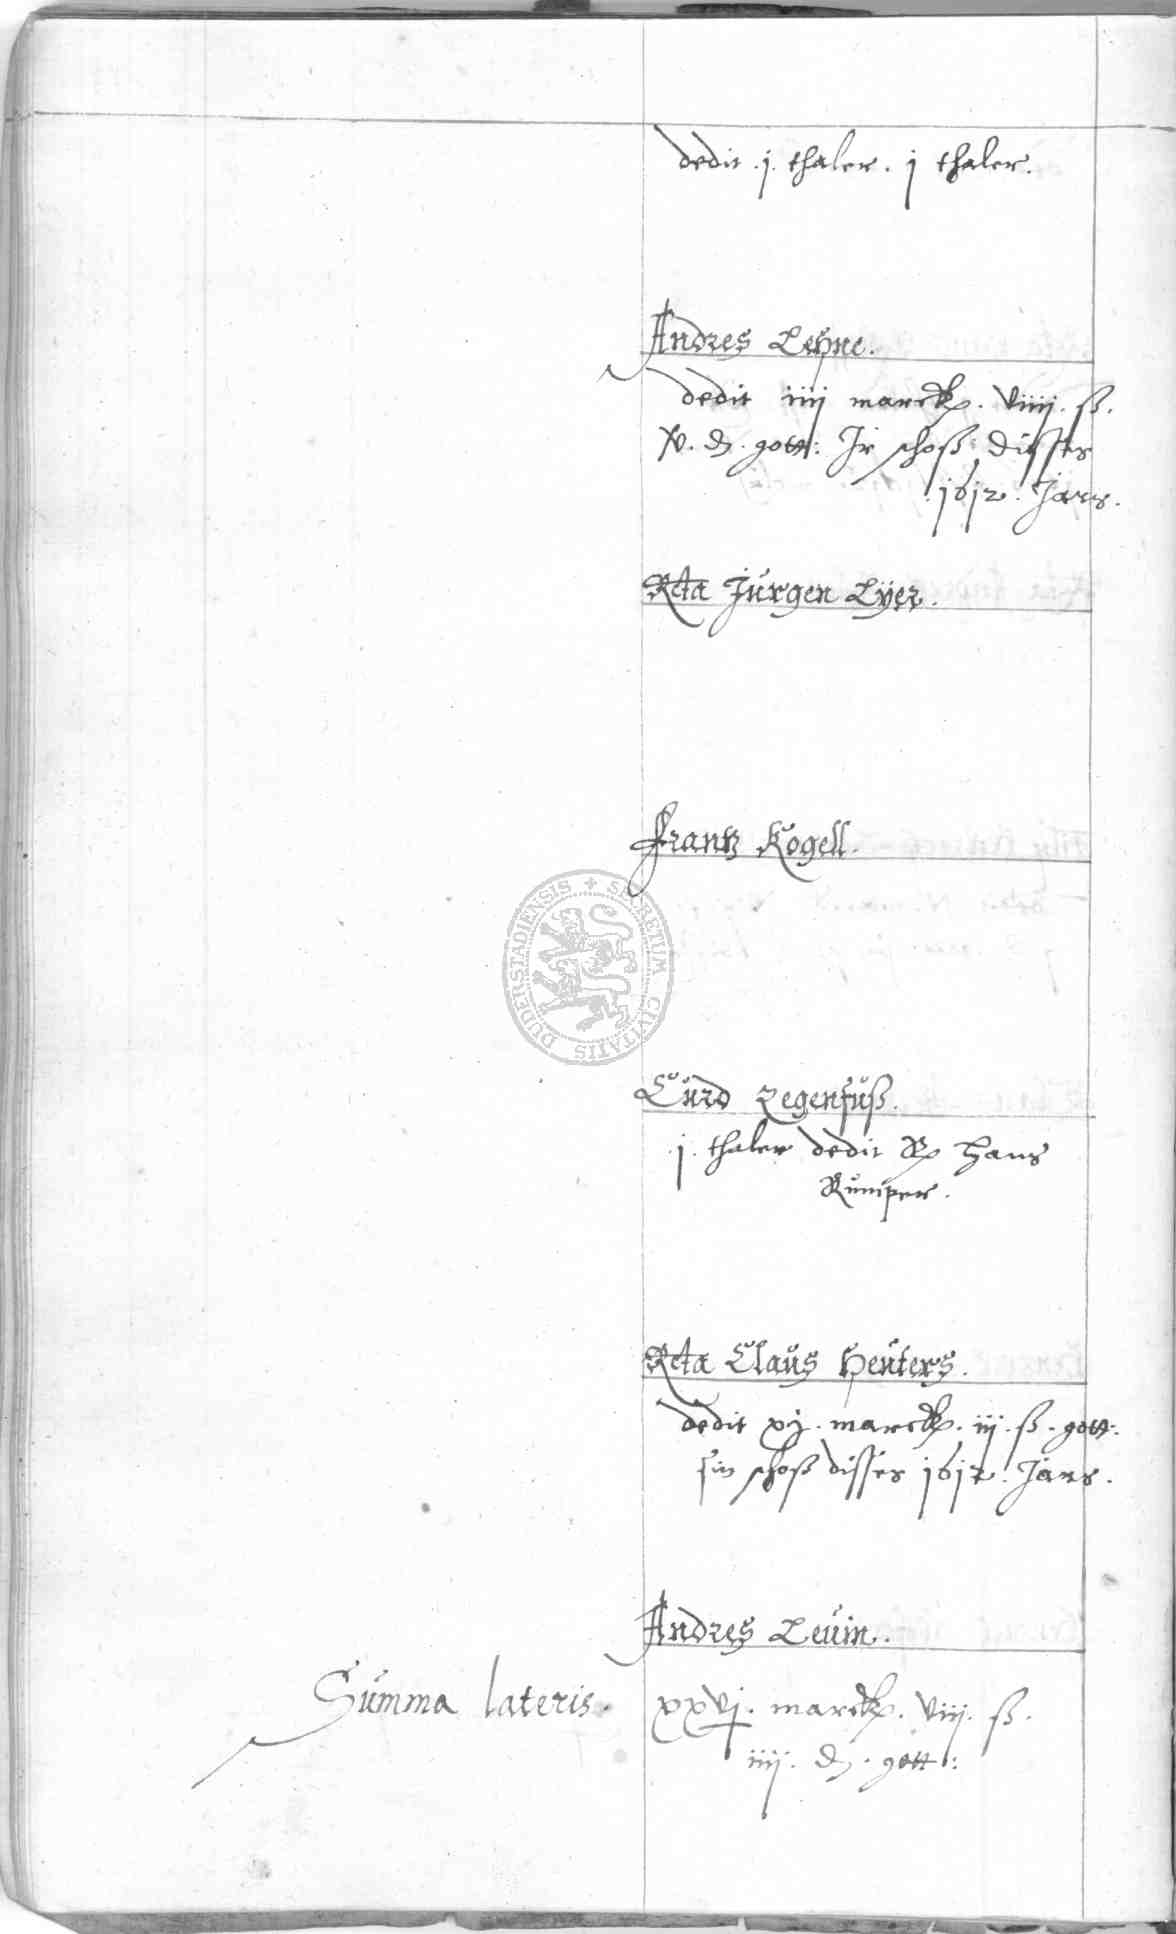 dedit .j. thaler. j thaler.
Andres Lehne.
dedit iiij marck. viiij. ß.
v. d. gott: Ir schoß disses
.1612. Jars.
Rcta Jürgen Lÿer.
Frantz Kogell.
Cürd Zegenfüß.
.j. thaler dedit Hans
Rümper.
Rcta Claüs Heüters.
dedit xj. marck. iij. ß. gott:
sin schoß disses 1612. Jars.
Andres Leüin.
Sümma lateris. xxvj. marck. viij. ß.
iiij. d. gott:
SECRETUM CIVITATIS DUDERSTADIENSIS